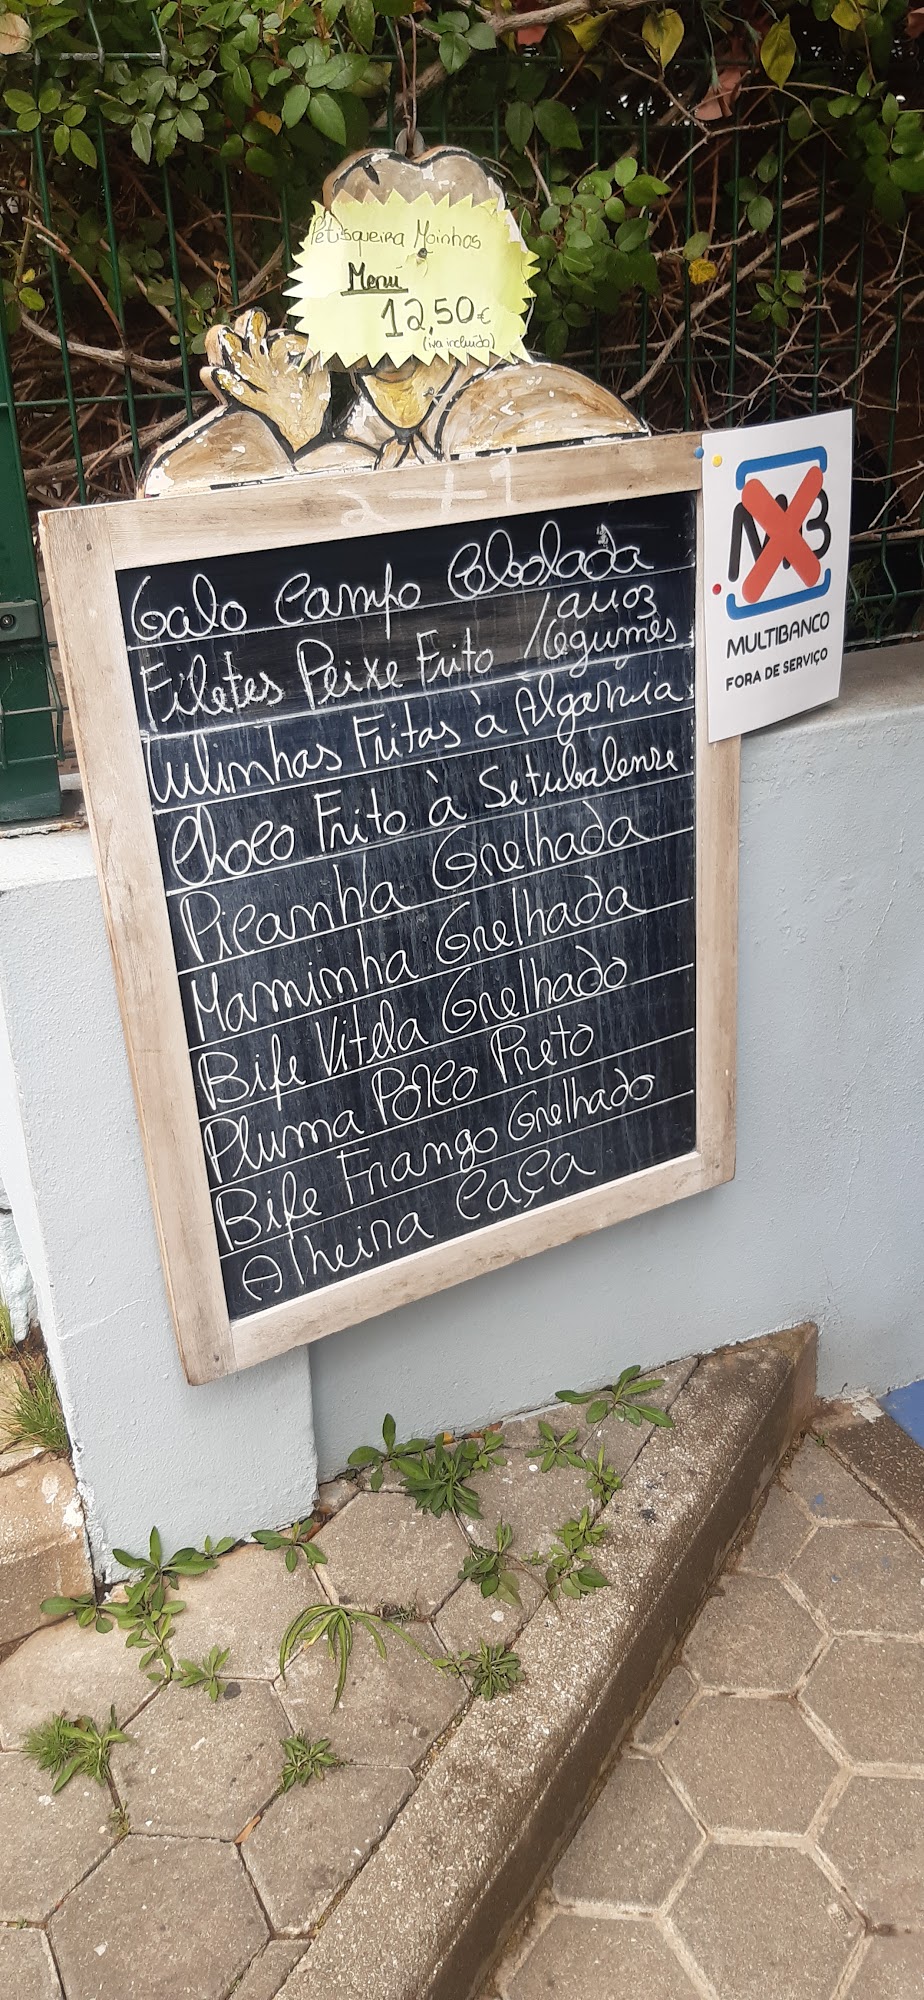 Petisqueira Moinhos
Menú
12,50€
(iva incluído)
2+1
Galo Campo Cebolada
Filetes Peixe Frito / arroz legumes
Lulinhas Fritas à Algarvia
Choco Frito à Setubalense
Picanha Grelhada
Maminha Grelhada
Bife Vitela Grelhado
Pluma Porco Preto
Bife Frango Grelhado
Alheira Caça
MB
MULTIBANCO
FORA DE SERVIÇO